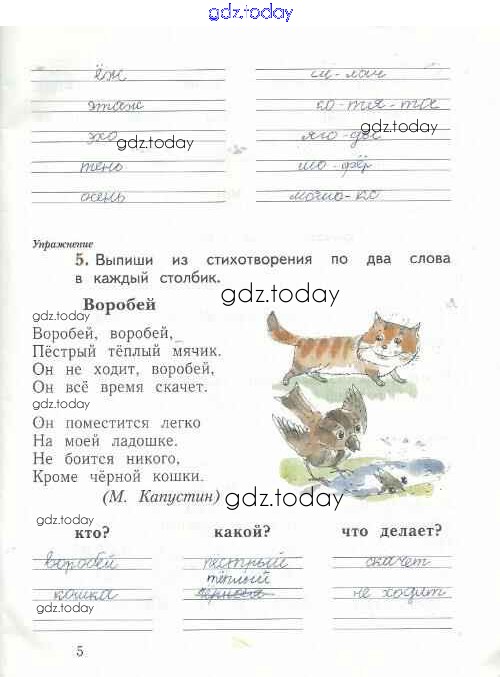 gdz.today
ёж
этаж
эхо
тень
осень
ко-тя-та
gdz.today
gdz.today
шо-фёр
Упражнение
5. Выпиши из стихотворения по два слова
в каждый столбик.
Воробей
gdz.today
gdz.today
Воробей, воробей,
Пёстрый тёплый мячик.
Он не ходит, воробей,
Он всё время скачет.
gdz.today
Он поместится легко
На моей ладошке.
Не боится никого,
Кроме чёрной кошки.
(М. Капустин)
gdz.today
gdz.today
кто? какой? что делает?
воробей пёстрый скачет
тёплый
кошка чёрная не ходит
gdz.today
5